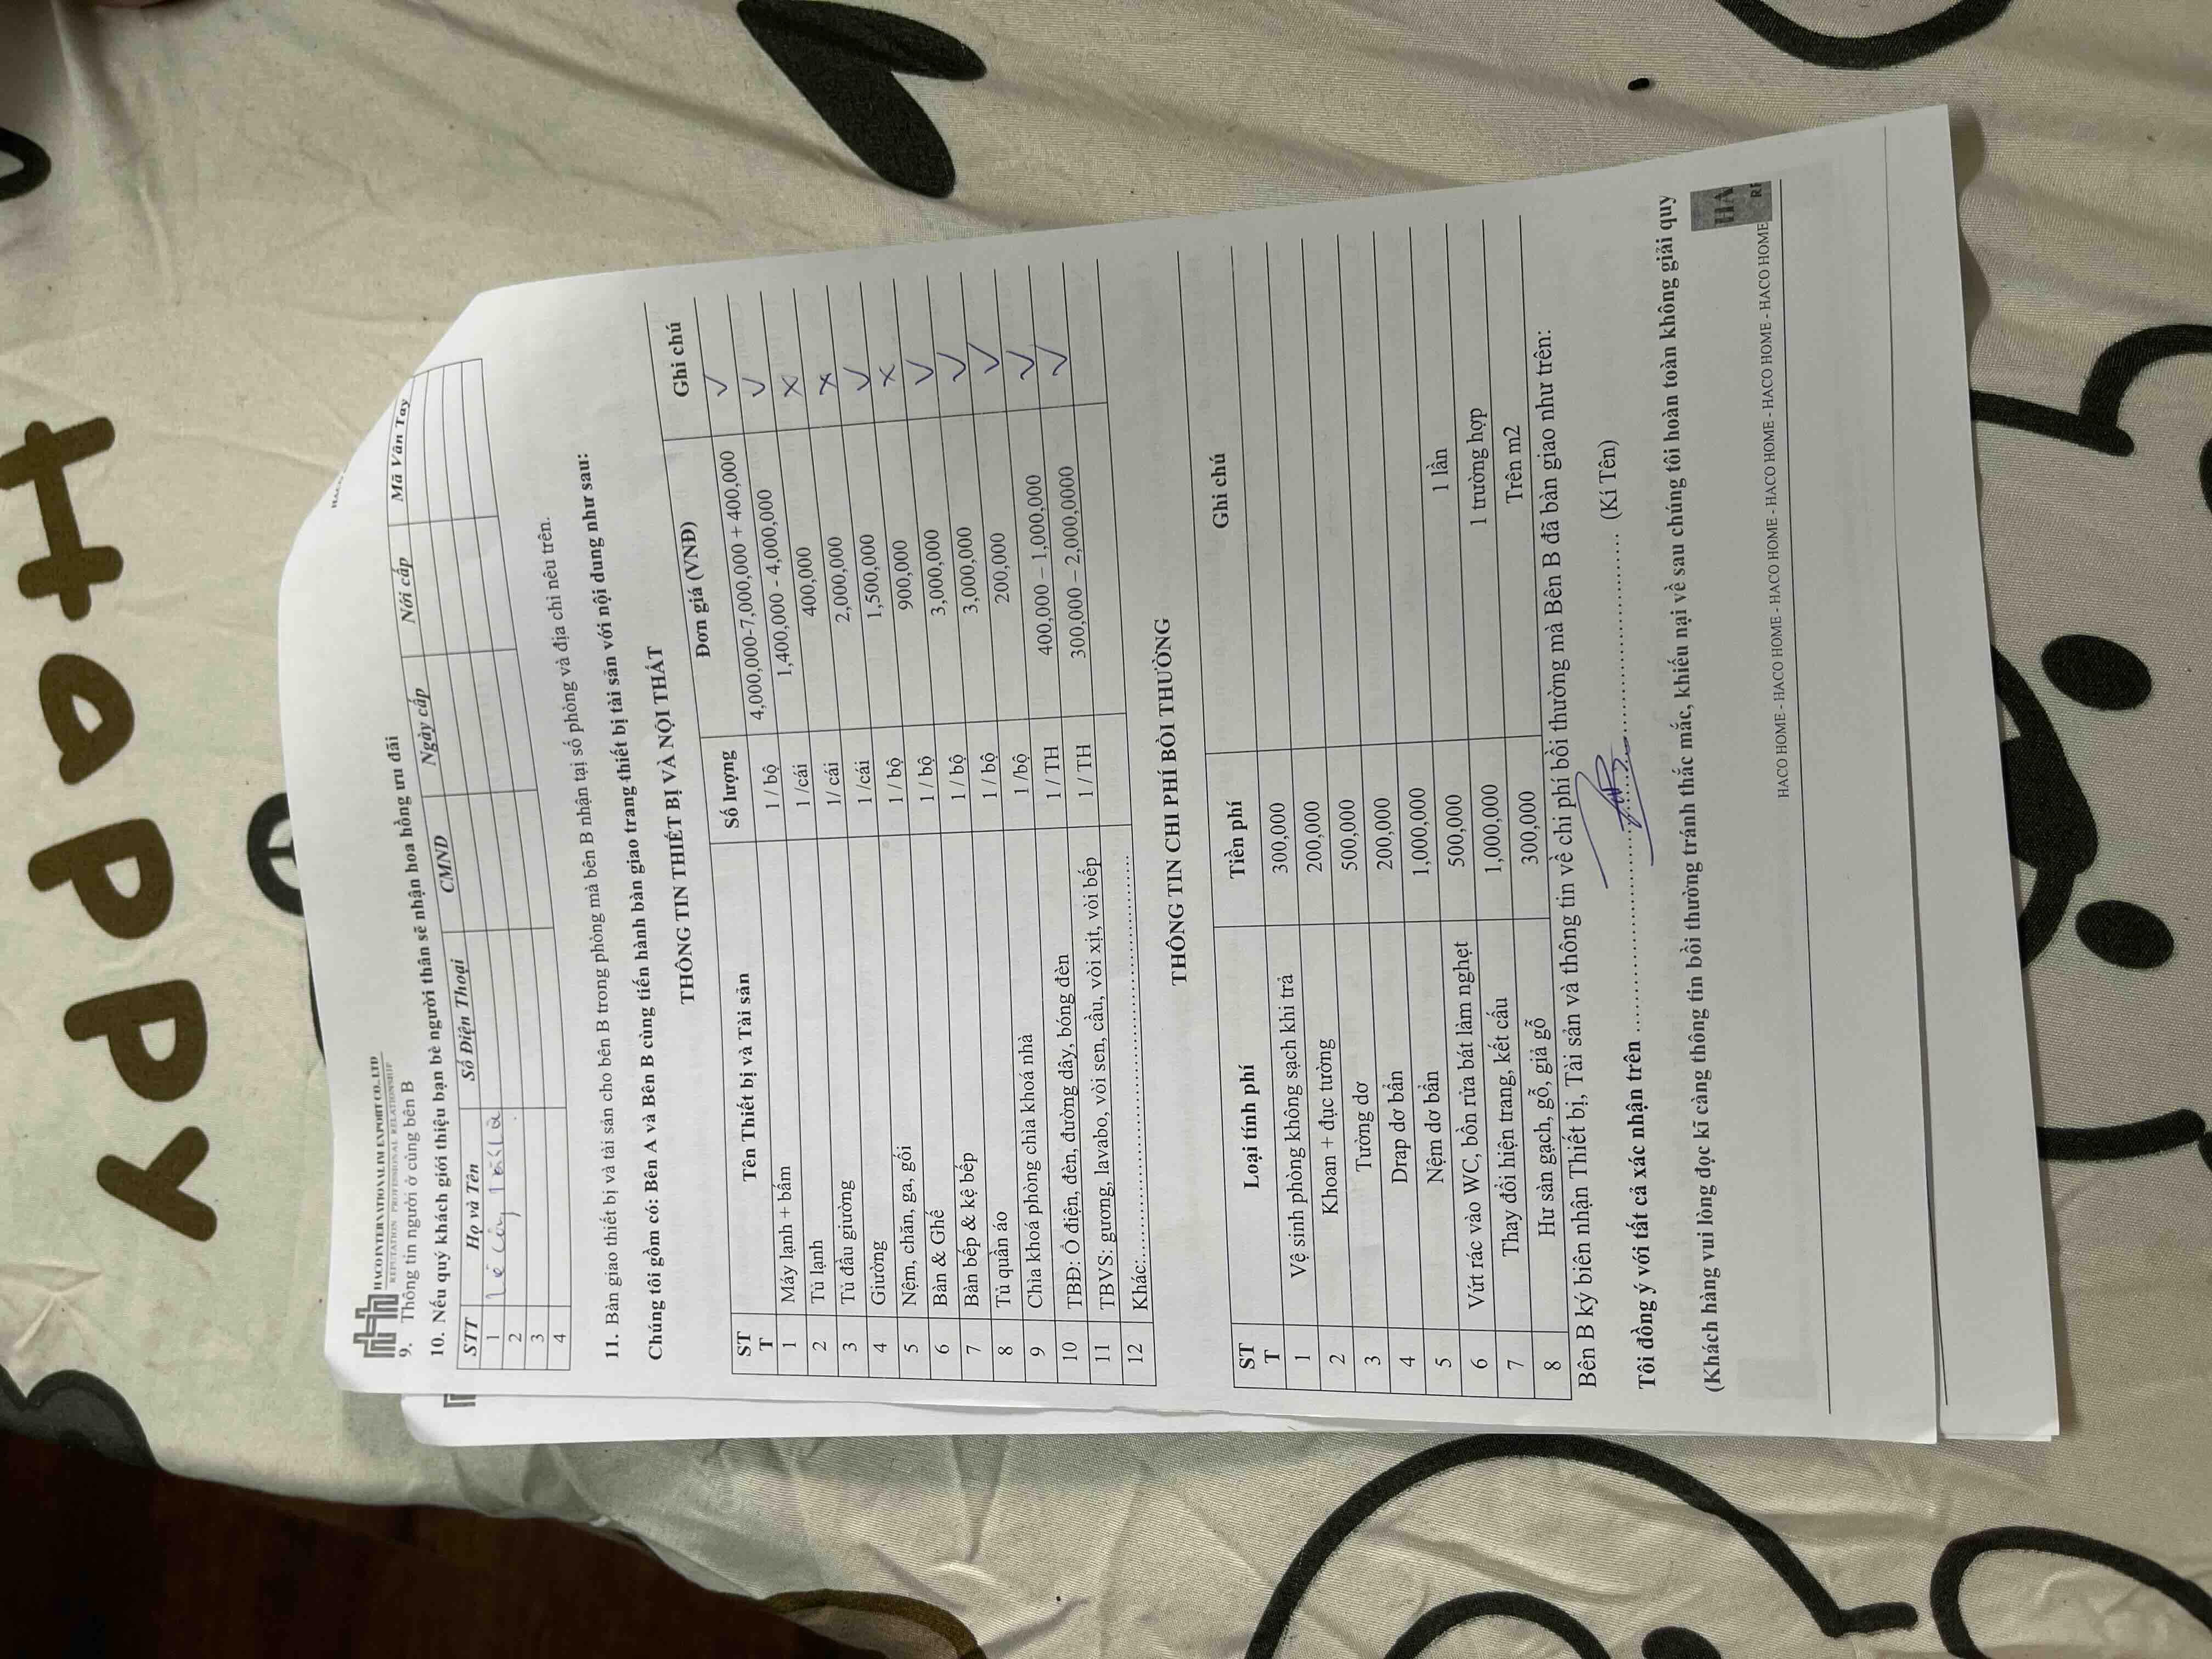 HAPPY
HACO INTERNATIONAL IM EXPORT CO., LTD
REPUTATION PROFESSIONAL RELATIONSHIP
9. Thông tin người ở cùng bên B
10. Nếu quý khách giới thiệu bạn bè người thân sẽ nhận hoa hồng ưu đãi
STT Họ và Tên Số Điện Thoại CMND Ngày cấp Nơi cấp Mã Vân Tay
1
2
3
4
11. Bàn giao thiết bị và tài sản cho bên B trong phòng mà bên B nhận tại số phòng và địa chỉ nêu trên.
Chúng tôi gồm có: Bên A và Bên B cùng tiến hành bàn giao trang thiết bị tài sản với nội dung như sau:
THÔNG TIN THIẾT BỊ VÀ NỘI THẤT
STT Tên Thiết bị và Tài sản Số lượng Đơn giá (VNĐ) Ghi chú
1 Máy lạnh + bấm 1 / bộ 4,000,000-7,000,000 + 400,000 ✓
2 Tủ lạnh 1 /cái 1,400,000 - 4,000,000 ✓
3 Tủ đầu giường 1/ cái 400,000 x
4 Giường 1 /cái 2,000,000 x
5 Nệm, chăn, ga, gối 1 / bộ 1,500,000 ✓
6 Bàn & Ghế 1 / bộ 900,000 x
7 Bàn bếp & kệ bếp 1 / bộ 3,000,000 ✓
8 Tủ quần áo 1 / bộ 3,000,000 ✓
9 Chìa khoá phòng chìa khoá nhà 1 /bộ 200,000 ✓
10 TBĐ: Ổ điện, đèn, đường dây, bóng đèn 1 / TH 400,000 – 1,000,000 ✓
11 TBVS: gương, lavabo, vòi sen, cầu, vòi xịt, vòi bếp 1 / TH 300,000 – 2,000,0000 ✓
12 Khác:......................................................
THÔNG TIN CHI PHÍ BỒI THƯỜNG
STT Loại tính phí Tiền phí Ghi chú
1 Vệ sinh phòng không sạch khi trả 300,000
2 Khoan + đục tường 200,000
3 Tường dơ 500,000
4 Drap dơ bẩn 200,000
5 Nệm dơ bẩn 1,000,000
6 Vứt rác vào WC, bồn rửa bát làm nghẹt 500,000 1 lần
7 Thay đổi hiện trang, kết cấu 1,000,000 1 trường hợp
8 Hư sàn gạch, gỗ, giả gỗ 300,000 Trên m2
Bên B ký biên nhận Thiết bị, Tài sản và thông tin về chi phí bồi thường mà Bên B đã bàn giao như trên:
Tôi đồng ý với tất cả xác nhận trên ................................................ (Kí Tên)
(Khách hàng vui lòng đọc kĩ càng thông tin bồi thường tránh thắc mắc, khiếu nại về sau chúng tôi hoàn toàn không giải quy
HACO HOME - HACO HOME - HACO HOME - HACO HOME - HACO HOME - HACO HOME - HACO HOME
HA